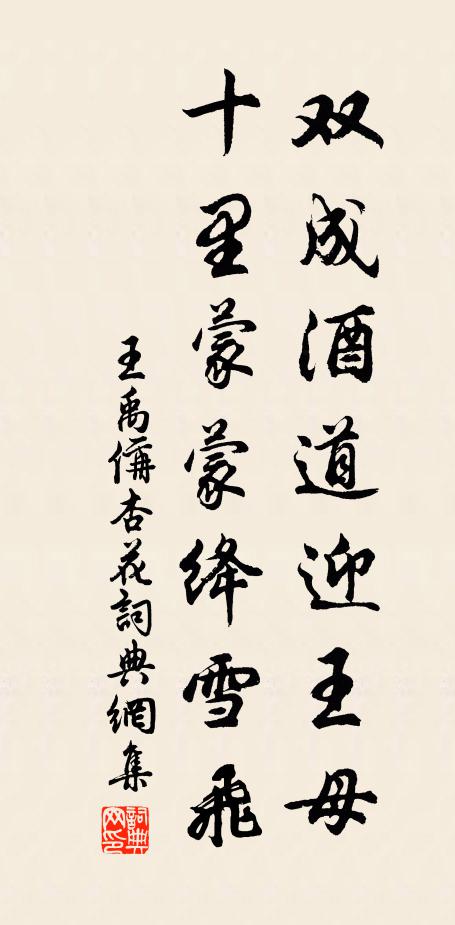 双成酒道迎王母
十里蒙蒙绛雪飛
王禹偁杏花詞典網集
詞典
网印